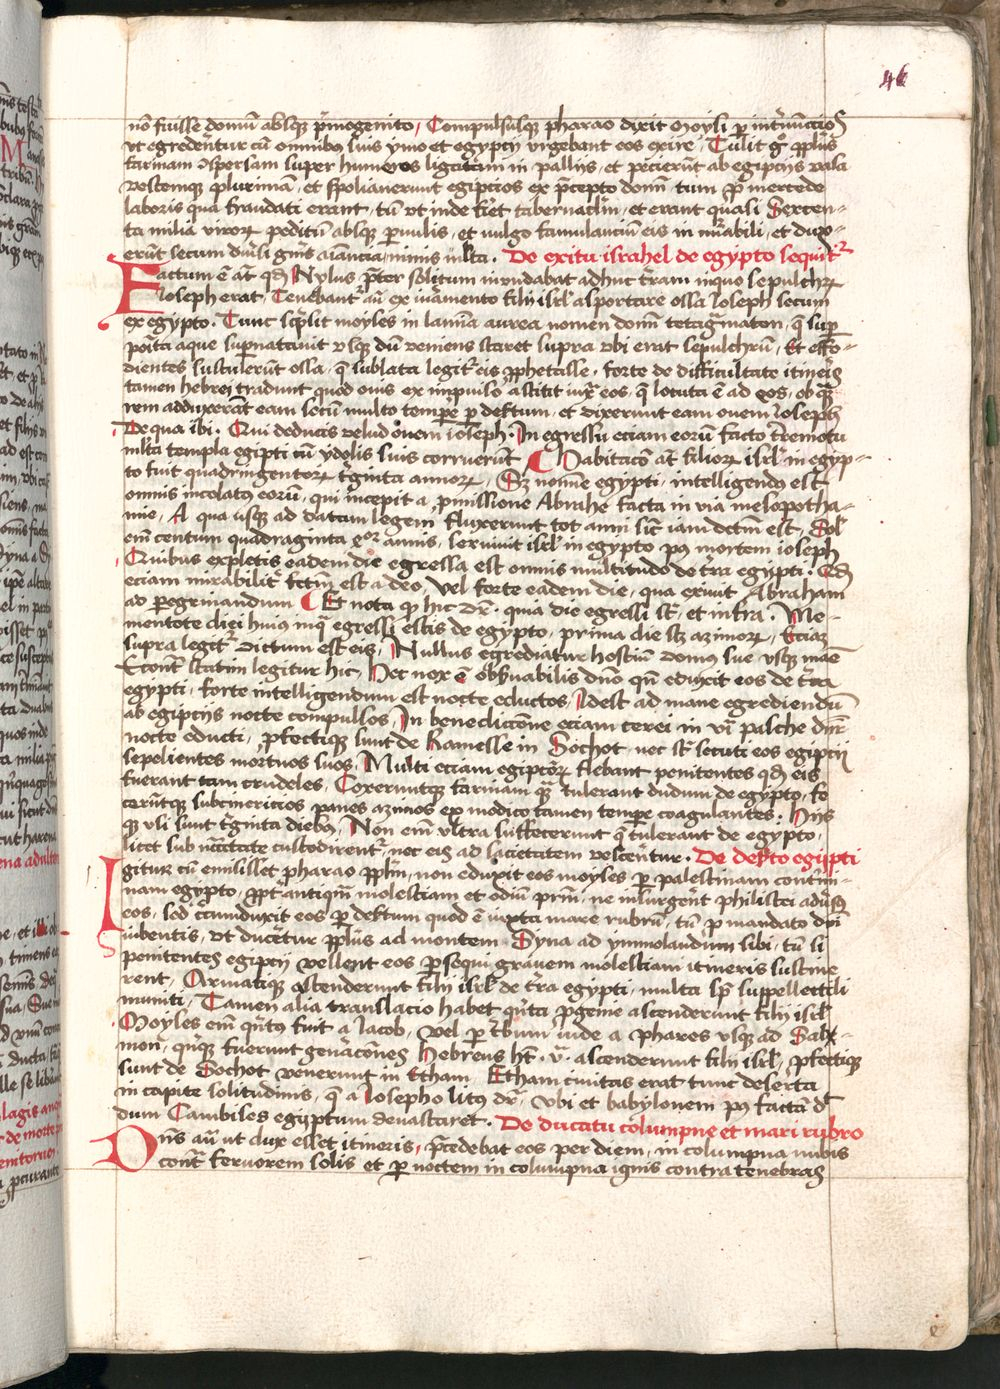 46
nō fuisse domū absq̄ p̄mogenito, Compulsusq̄ pharao dixit Moysi ꝑ int̄nuncios
vt egrederent̄ cū omnibus suis ymo et egypcij vrgebant eos exire, Tulit gͦ pplūs
farinam ꝯspersam super humeros ligatam in pallijs, et pecierūt ab egipcijs vasa
vestemque plurimam, et spolianerunt egipcios ex p̄cepto domī, tum p̄ mercede
laboris qua fraudati erant, tū vt inde fiēt tabernaclm̄, et erant quasi Sexcen-
ta milia virorꝝ peditū absq̄ ꝑuulis, et vulgo famulanciū eis in
erūt secum diūsi gnīs aīancia nimis mlta. De exitu israhel de egypto sequitr̄
Factum ē at̄ qd̄ Nylus p̄ter solitum inundabat adhuc tr̄am inquo sepulchrꝝ
Joseph erat, Tenebant̄ aū ex iuramento filij isrl̄ asportare ossa Joseph secum
ex egypto. Tunc scp̄sit moyses in lamīa aurea nomen domī tetagrāmaton, q̄ sup̄
poīta aque supernatauit vsq̄ dū veniens staret supra vbi erat sepulchrū, Et effo-
dientes sustulerūt ossa, q̄ sublata legit̄ eis ꝓphetasse, forte de difficultate itineris
tamen hebrei tradunt quod ouis ex impulso astitit iuxͣ eos, q̄ locuta ē ad eos, ob quā
rem adduxerāt eam secū multo tempore p̄ desertum, et dixerunt eam ouem Joseph
De qua ibi. Qui deducis velud ouem ioseph. In egressu eciam eorū facto tr̄emotu
mlta templa egipti cū ydolis suis corruerūt Habitacō at̄ filiorꝝ isrl̄ in egyp-
to fuit quadringentorꝝ tͥginta annorꝝ, Sꝫ nomine egypti, intelligendꝰ est
omnis incolatꝰ eorū, qui incepit a ꝓmissione Abrahe facta in via mesopotha-
mie, A qua usq̄ ad datam legem fluxerunt tot anni sicut iam dcm̄ est, Sol'
em̄ centum quadraginta ꝗꝛ annis, seruiuit isrl̄ in egypto pꝰ mortem ioseph
Quibus expletis eadem die egressa est omnis multitudo de tr̄a egypti. Qd̄
eciam mirabilit̄ fc̄m est adeo, Vel forte eadem die, qua exiuit Abraham
ad ꝑegrinandum Et nota qꝫ hic dr̄. quia die egressi st̄, et infra, Me-
mentote diei huiꝰ inq̄ egressi estis de egypto, prima die sꝫ azimorꝝ, Eciaꝫ
supra legit̄ dictum est eis, Nullus egrediatur hostiū domus sue, vsq̄ mane
Econt̄ statim legitur hic, Hec nox ē obs̄uabilis dn̄o qn̄ eduxit eos de tr̄a
egypti, forte intelligendum est nocte eductos, Idest ad mane egrediendū
ab egiptijs nocte compulsos, In benedictōne eciam cerei in vig̃ pasche dn̄r
nocte educti, ꝓfectique sunt de Ramesse in Sochot, nec st̄ secuti eos egiptij
sepelientes mortuos suos, Multi eciam egiptiorꝝ flebant penitentes qd̄ eis
fuerant tam crudeles, Coxeruntqꝫ farinam quā tulerant dudum de egypto, fe
cerūtqꝫ subcinericios panes azimos ex modico tamen tempore coagulantes. Hijs
qꝫ vsi sunt tͥginta diebus, Non em̄ vltra suffecerunt q̄ tulerant de egypto,
licet sub nccītate custodirent̄, nec eis ad sacietatem vescerētur. De desr̄to egipti
Igitur cū emisisset pharao pplm̄, non eduxit eos moyses per palestinam contīm-
nam egypto, ꝓpt̄ antiqm̄ molestiam et odiū prm̄, ne insurgerēt philistei adūsꝰ
eos, sed circumduxit eos per desertum quod ē iuxta mare rubrū, tū p̄ mandato dn̄i
iubentis, vt ducet̄ur pplūs ad montem Syna ad ymmolandum sibi, tū si
penitentes egiptij vellent eos ꝑsequi grauem molestiam itineris sustine
rent, Armatique ascenderunt filij isrl̄ de tr̄a egypti, multa sp̄ suppellectili
muniti, Tamen alia translacio habet quīta ꝓgenie ascenderunt filij isrl̄
Moyses em̄ quītꝰ fuit a Jacob, vel per tͥbum iude a Phares vsq̄ ad Sal-
mon, quīqꝫ fuerunt genāciōnes Hebreus ht̄. ascenderunt filij isrl̄, ꝓfectique
sunt de Sochot venerunt in Etham, Etham ciuitas erat tunc deserta
in capite solitudinis, q̄ a Josepho litꝰ dr̄, vbi et babylonem pꝰ facta ē
dum Cambises egyptum deuastaret. De ducatu columpne et mari rubro
Dn̄s aū ut dux esset itineris, p̄cedebat eos per diem, in columpna nubis
cont̄ feruorem solis et per noctem in columpna ignis contra tenebras